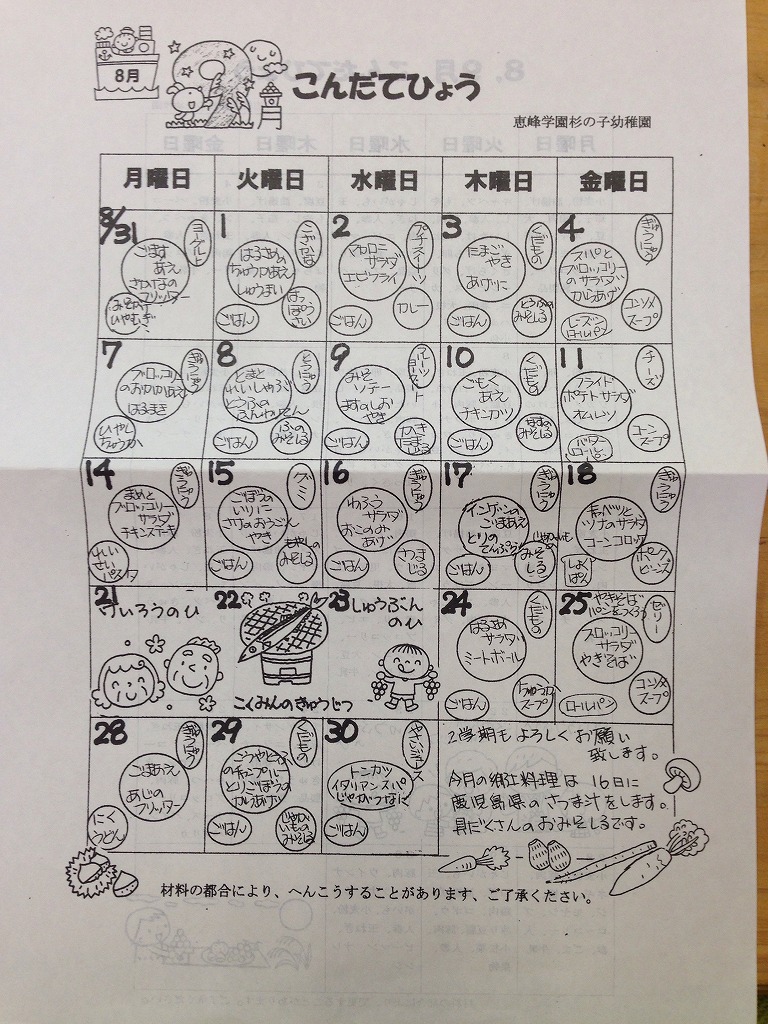 8月
9月
こんだてひょう
恵峰学園杉の子幼稚園
月曜日
火曜日
水曜日
木曜日
金曜日
8/31
ヨーグルト
ごます
あえ
さかなの
フリッター
みそかけ
ひやむぎ
1
こざかな
はるさめの
ちゅうかあえ
しゅうまい
ごはん
はっ
ぽう
さい
2
プチスイーツ
マカロニ
サラダ
エビフライ
ごはん
カレー
3
くだもの
たまご
やき
あげに
ごはん
とうふの
みそしる
4
ぎゅうにゅう
スパと
ブロッコリー
のサラダ
からあげ
レーズン
ロールパン
コンソメ
スープ
7
ぎゅうにゅう
ブロッコリー
のおかかあえ
はるまき
ひやし
ちゅうか
8
とうにゅう
とまと
れいしゃぶ
とうふの
ふんわりてん
ごはん
ふの
みそしる
9
フルーツ
ヨーグルト
みそ
ソテー
ますのしお
やき
ごはん
かき
たま
じる
10
くだもの
ごもく
あえ
チキンカツ
ごはん
なすの
みそしる
11
チーズ
フライド
ポテトサラダ
オムレツ
バター
ロール
コーン
スープ
14
ぎゅうにゅう
まめと
ブロッコリー
サラダ
チキンステーキ
れい
せい
パスタ
15
グミ
ごぼうの
いりに
さけのおうごん
やき
ごはん
もやしの
みそしる
16
ぎゅうにゅう
わふう
サラダ
おこのみ
あげ
ごはん
さつま
じる
17
ぎゅうにゅう
インゲンの
ごまあえ
とりの
てんぷら
ごはん
じゃがいもの
みそ
しる
18
ぎゅうにゅう
キャベツと
ツナのサラダ
コーンコロッケ
しょく
ぱん
ポーク
ビーンズ
21
けいろうのひ
22
こくみんのきゅうじつ
23
しゅうぶん
のひ
24
くだもの
はるさめ
サラダ
ミートボール
ごはん
ちゅうか
スープ
25
やきそば
パンをつくろう
ゼリー
ブロッコリー
サラダ
やきそば
ロールパン
コンソメ
スープ
28
ぎゅうにゅう
ごまあえ
あじの
フリッター
にく
うどん
29
くだもの
ごうやとふ
のチャンプルー
とりごぼうの
からあげ
ごはん
じゃが
いもの
みそしる
30
やさいジュース
トンカツ
イタリアンスパ
じゃがつなに
ごはん
2学期も よろしく お願い
致します。
今月の郷土料理は 16日に
鹿児島県の さつま汁を します。
具だくさんの おみそしるです。
材料の都合により、へんこうすることがあります、ご了承ください。